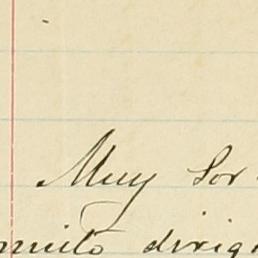 Muy Sor
mito dirig